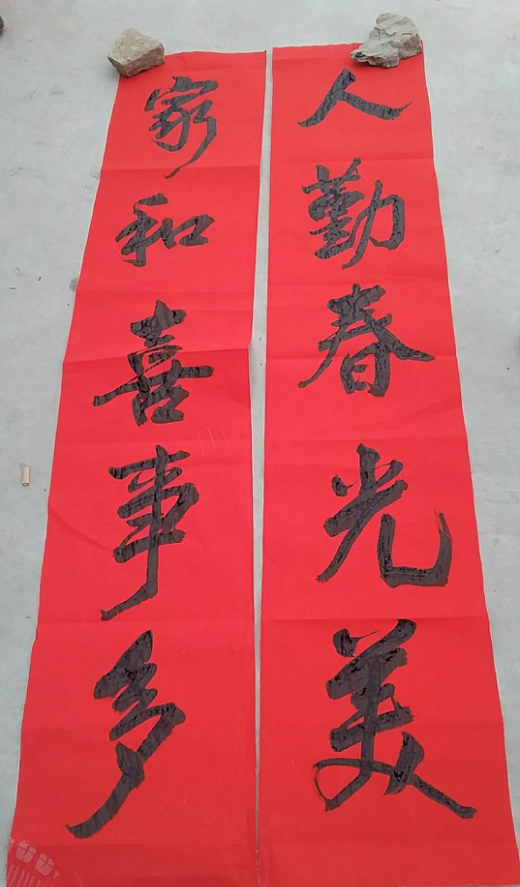 人勤春光美
家和喜事多